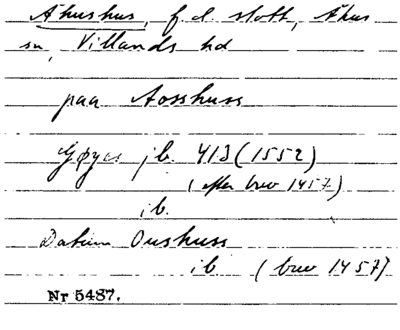 Åhushus, f.d. slott, Åhus
sn, Villands hd
paa Aosshuss
Gøyes jb. 413 (1552)
(efter brev 1457)
ib.
Datum Oushuss
ib. (brev 1457)
Nr 5487.